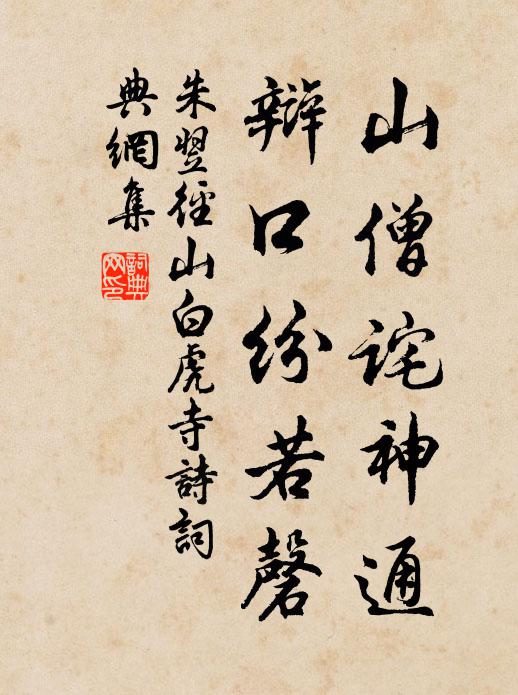 山僧詫神通
辯口紛若磬
朱翌徑山白虎寺詩詞
典網集
詞典
网印